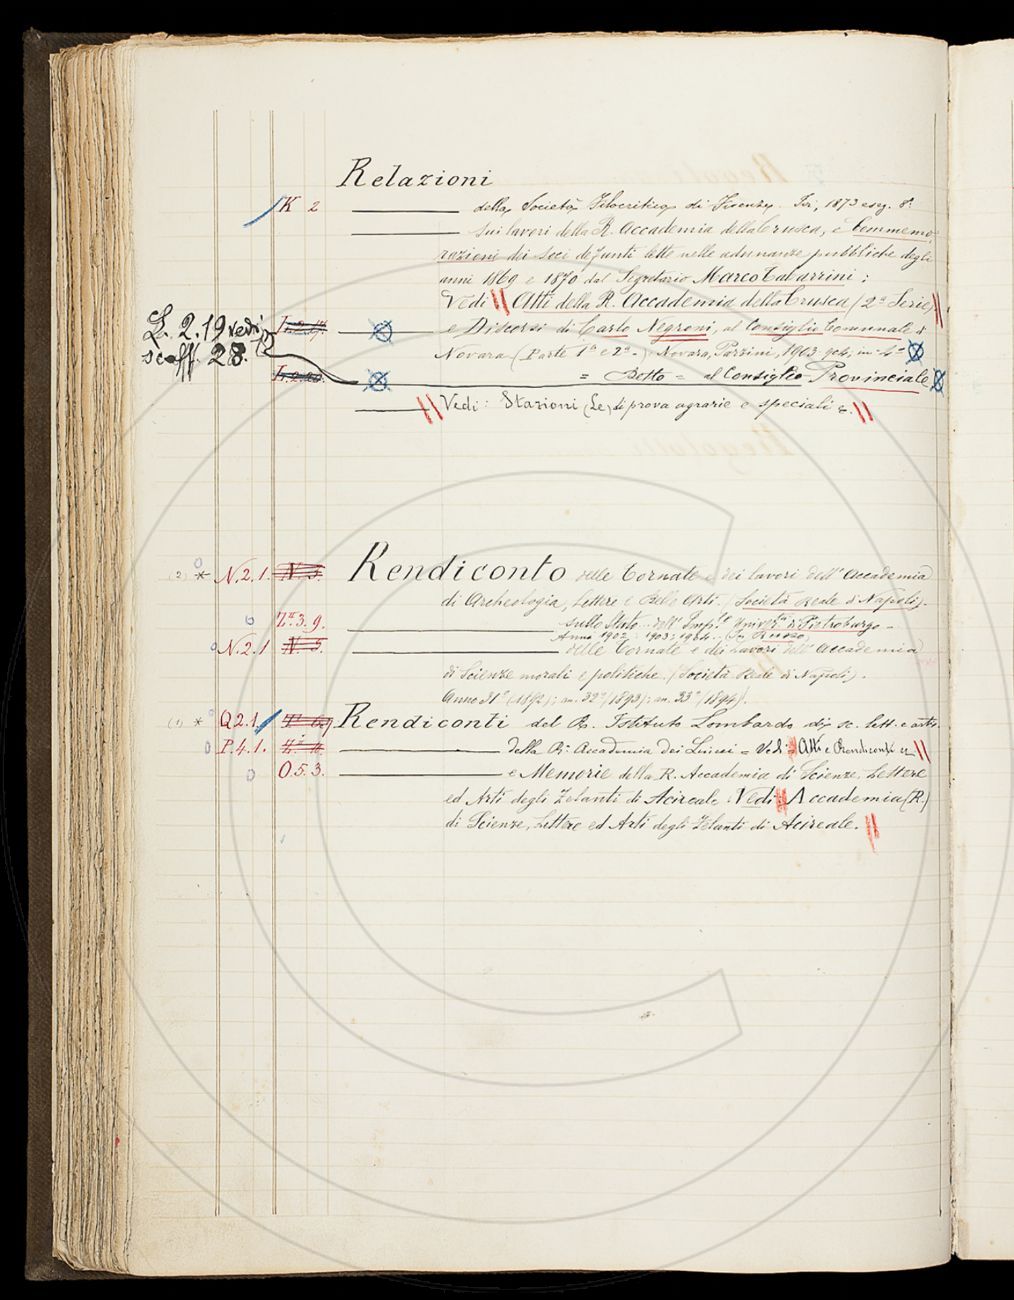 Relazioni
K 2 della Società Filocritica di Firenze. Ivi, 1873 e seg. 8.º
sui lavori della R. Accademia della Crusca, e Commemo-
razioni dei soci defunti lette nelle adunanze pubbliche degli
anni 1869 e 1870 dal Segretario Marco Tabarrini;
Vedi Atti della R. Accademia della Crusca (2ª Serie)
L. 2. 19 vedi e Discorsi di Carlo Negroni, al Consiglio Comunale di
scaff. 28. Novara (Parte 1ª e 2ª) Novara, 1903-904, in-4º
= Detto = al Consiglio Provinciale
Vedi: Stazioni (Le) di prova agrarie e speciali &.
(2) * N. 2. 1. N. 5. Rendiconto delle Tornate e dei lavori dell'Accademia
di Archeologia, Lettere e Belle Arti. (Società Reale di Napoli).
3. 9. sullo Stato dell' Imp. Univ.tà di Pietroburgo -
Anno 1902 - 1903 - 1904 - (In Russo)
N. 2. 1 N. 5. delle Tornate e dei Lavori dell'Accademia
di Scienze morali e politiche. (Società Reale di Napoli).
Anno 31º (1892); an. 32º (1893); an. 33º (1894).
(1) * Q. 2. 1. Rendiconti del R. Istituto Lombardo di sc. lett. e arti.
P. 4. 1. della R. Accademia dei Lincei = Vedi Atti e Rendiconti
O. 5. 3. e Memorie della R. Accademia di Scienze, Lettere
ed Arti degli Zelanti di Acireale. Vedi Accademia (R.)
di Scienze, Lettere ed Arti degli Zelanti di Acireale.